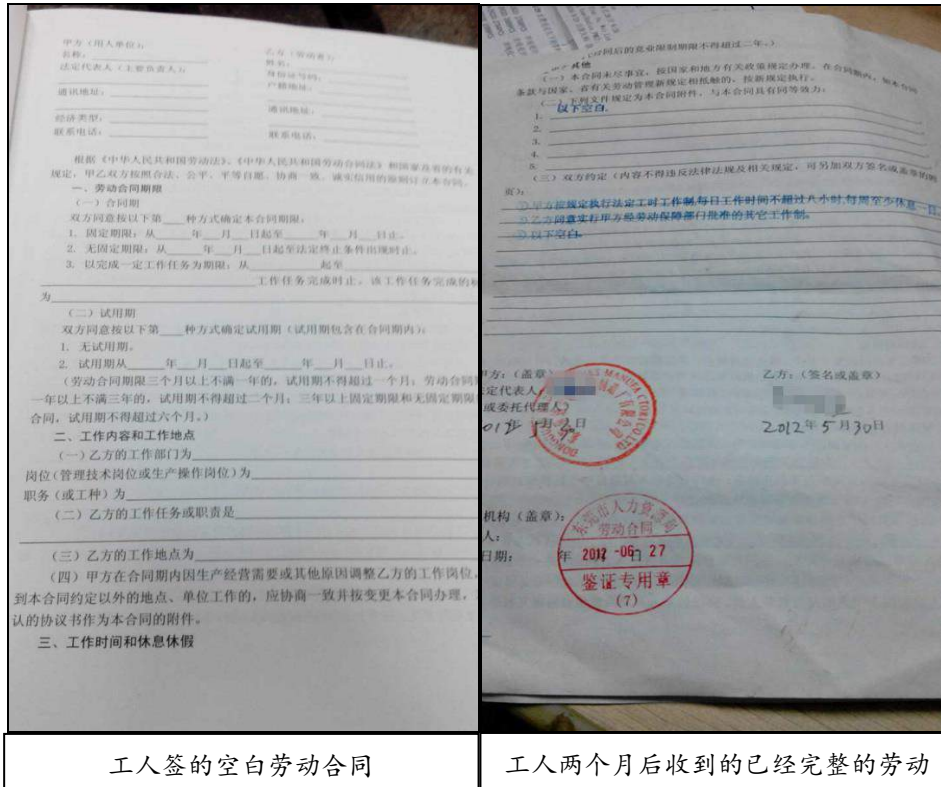 甲方（用人单位）：
名称：
法定代表人（主要负责人）：
通讯地址：
经济类型：
联系电话：
乙方（劳动者）：
姓名：
身份证号码：
户籍地址：
通讯地址：
联系电话：
根据《中华人民共和国劳动法》、《中华人民共和国劳动合同法》和国家及省的有关
规定，甲乙双方按照合法、公平、平等自愿、协商一致、诚实信用的原则订立本合同。
一、劳动合同期限
（一）合同期
双方同意按以下第____种方式确定本合同期限：
1. 固定期限：从____年__月__日起至____年__月__日止。
2. 无固定期限：从____年__月__日起至法定终止条件出现时止。
3. 以完成一定工作任务为期限：从________起至________
工作任务完成时止，该工作任务完成的标
为
（二）试用期
双方同意按以下第____种方式确定试用期（试用期包含在合同期内）：
1. 无试用期。
2. 试用期从____年__月__日起至____年__月__日止。
（劳动合同期限三个月以上不满一年的，试用期不得超过一个月；劳动合同
一年以上不满三年的，试用期不得超过二个月；三年以上固定期限和无固定期限
合同，试用期不得超过六个月。）
二、工作内容和工作地点
（一）乙方的工作部门为
岗位（管理技术岗位或生产操作岗位）为
职务（或工种）为
（二）乙方的工作任务或职责是
（三）乙方的工作地点为
（四）甲方在合同期内因生产经营需要或其他原因调整乙方的工作岗位，
到本合同约定以外的地点、单位工作的，应协商一致并按变更本合同办理，
认的协议书作为本合同的附件。
三、工作时间和休息休假
工人签的空白劳动合同
同后的竞业限制期限不得超过二年。）
其他
（一）本合同未尽事宜，按国家和地方有关政策规定办理。在合同期内，如本合同
条款与国家、省有关劳动管理新规定相抵触的，按新规定执行。
（二）下列文件规定为本合同附件，与本合同具有同等效力：
1. 以下空白.
2.
3.
4.
5.
（三）双方约定（内容不得违反法律法规及相关规定，可另加双方签名或盖章的附
页）：
①甲方按规定执行法定工时工作制,每日工作时间不超过八小时,每周至少休息一日
②乙方同意实行甲方经劳动保障部门批准的其它工作制.
③以下空白.
甲方：（盖章）
法定代表人
（或委托代理人）
乙方：（签名或盖章）
2012年5月30日
机构（盖章）：
人：
日期： 年 月 日
东莞市人力资源局
劳动合同
2012 -06- 27
鉴证专用章
(7)
工人两个月后收到的已经完整的劳动